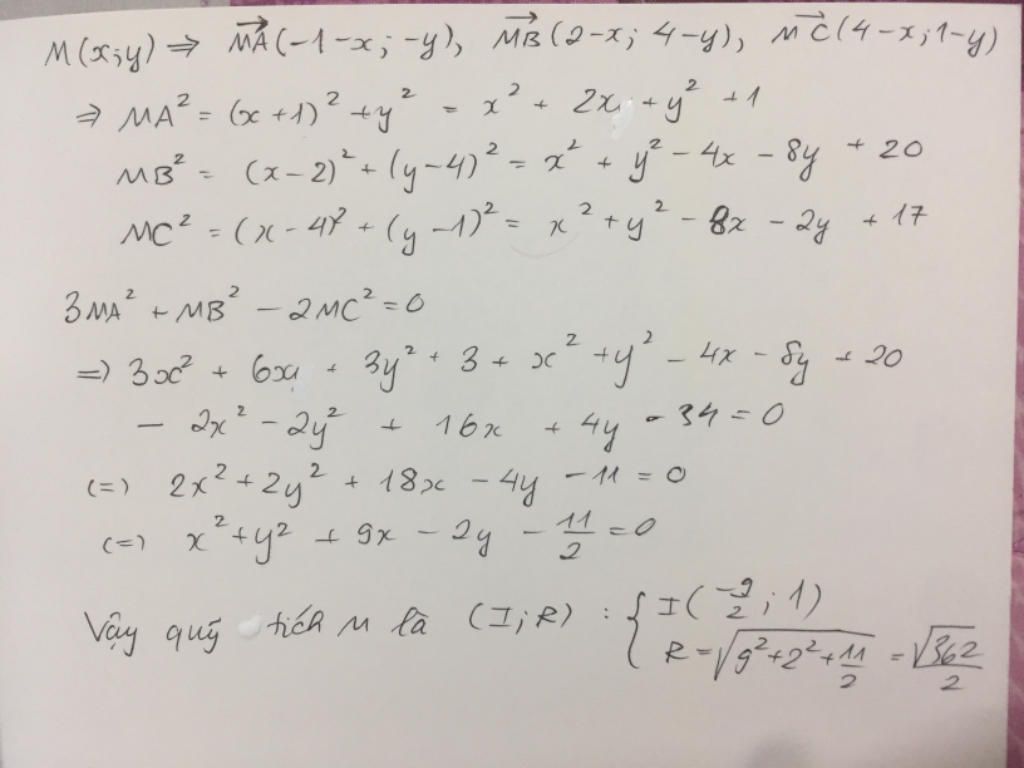 M(x;y) ⇒ MA→(-1-x; -y), MB→(2-x; 4-y), MC→(4-x; 1-y)
⇒ MA² = (x+1)² + y² = x² + 2x + y² + 1
MB² = (x-2)² + (y-4)² = x² + y² - 4x - 8y + 20
MC² = (x-4)² + (y-1)² = x² + y² - 8x - 2y + 17
3MA² + MB² - 2MC² = 0
=) 3x² + 6x + 3y² + 3 + x² + y² - 4x - 8y + 20
- 2x² - 2y² + 16x + 4y - 34 = 0
(=) 2x² + 2y² + 18x - 4y - 11 = 0
(=) x² + y² + 9x - 2y - 11/2 = 0
Vậy quỹ tích M là (I;R) : { I(-9/2; 1)
R = √(9² + 2² + 11/2) = √362/2